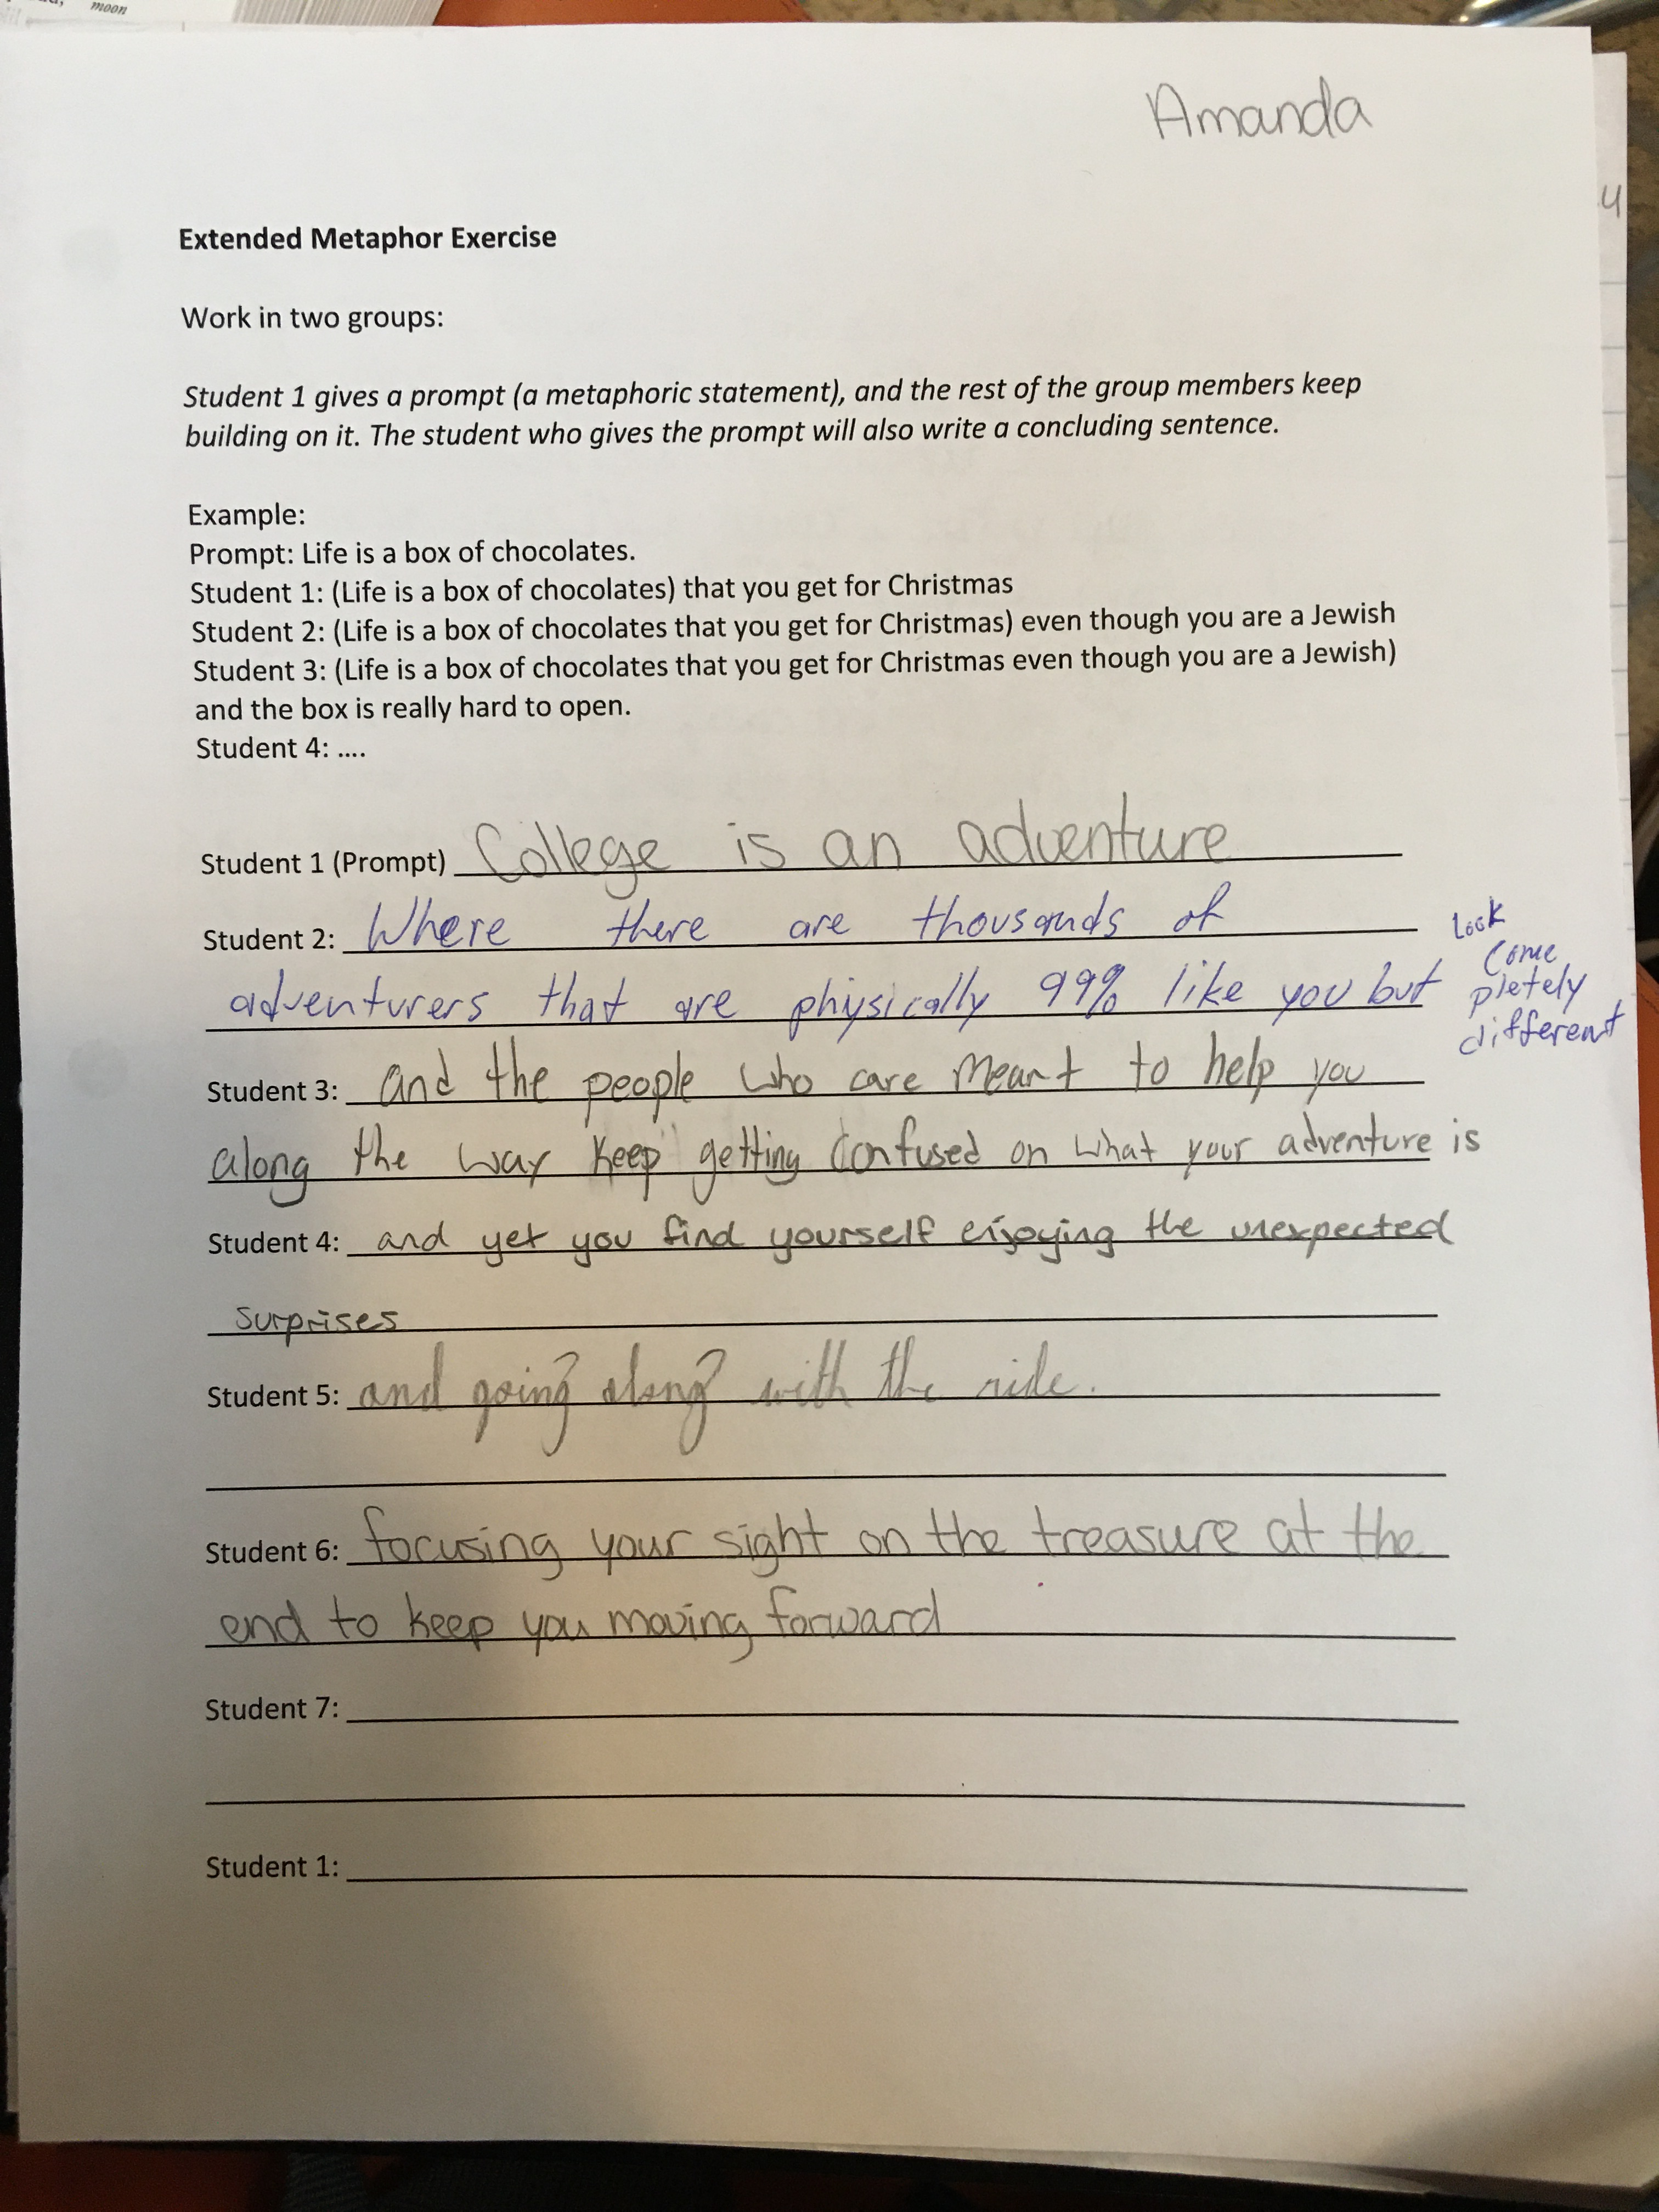 moon
Amanda
4
Extended Metaphor Exercise
Work in two groups:
Student 1 gives a prompt (a metaphoric statement), and the rest of the group members keep
building on it. The student who gives the prompt will also write a concluding sentence.
Example:
Prompt: Life is a box of chocolates.
Student 1: (Life is a box of chocolates) that you get for Christmas
Student 2: (Life is a box of chocolates that you get for Christmas) even though you are a Jewish
Student 3: (Life is a box of chocolates that you get for Christmas even though you are a Jewish)
and the box is really hard to open.
Student 4: ....
Student 1 (Prompt) College is an adventure
Student 2: Where there are thousands of
adventurers that are physically 99% like you but
look
come
pletely
different
Student 3: and the people who are meant to help you
along the way keep getting confused on what your adventure is
Student 4: and yet you find yourself enjoying the unexpected
surprises
Student 5: and going along with the ride.
Student 6: focusing your sight on the treasure at the
end to keep you moving forward
Student 7:
Student 1: